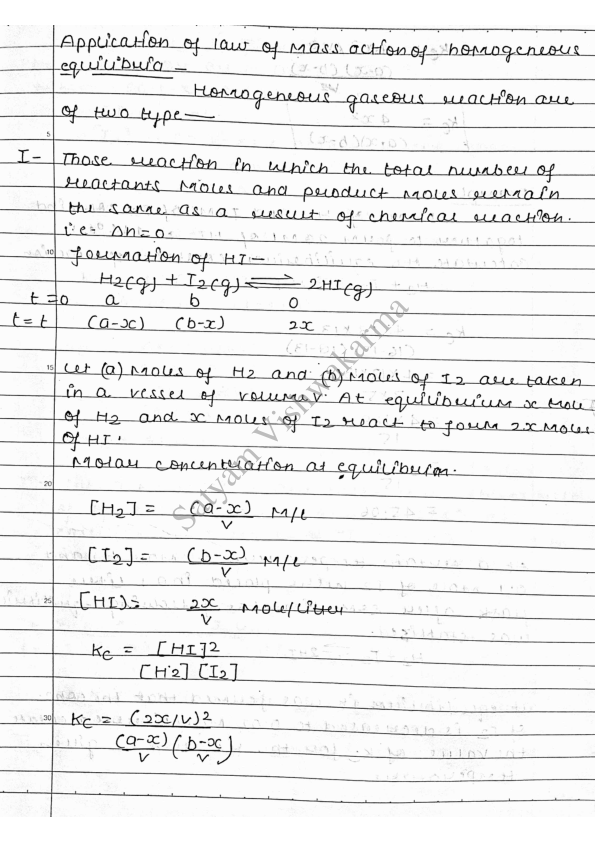 Application of law of Mass action of homogeneous
equilibria -
Homogeneous gaseous reaction are
of two type —
5
I - Those reaction in which the total number of
reactants Moles and product Moles remain
the same as a result of chemical reaction.
i.e. Δn=0
10
formation of HI -
H2(g) + I2(g) ⇌ 2HI(g)
t=0 a b 0
t=t (a-x) (b-x) 2x
15
Let (a) Moles of H2 and (b) Moles of I2 are taken
in a vessel of volume V. At equilibrium x Mole
of H2 and x Moles of I2 react to form 2x Moles
of HI.
Molar concentration at equilibrium.
20
[H2] = (a-x)/V M/l
[I2] = (b-x)/V M/l
25
[HI) = 2x/V Mole/Liter
Kc = [HI]2
[H2] [I2]
30
Kc = (2x/V)2
(a-x)/V (b-x/V)
Satyam Vishwakarma